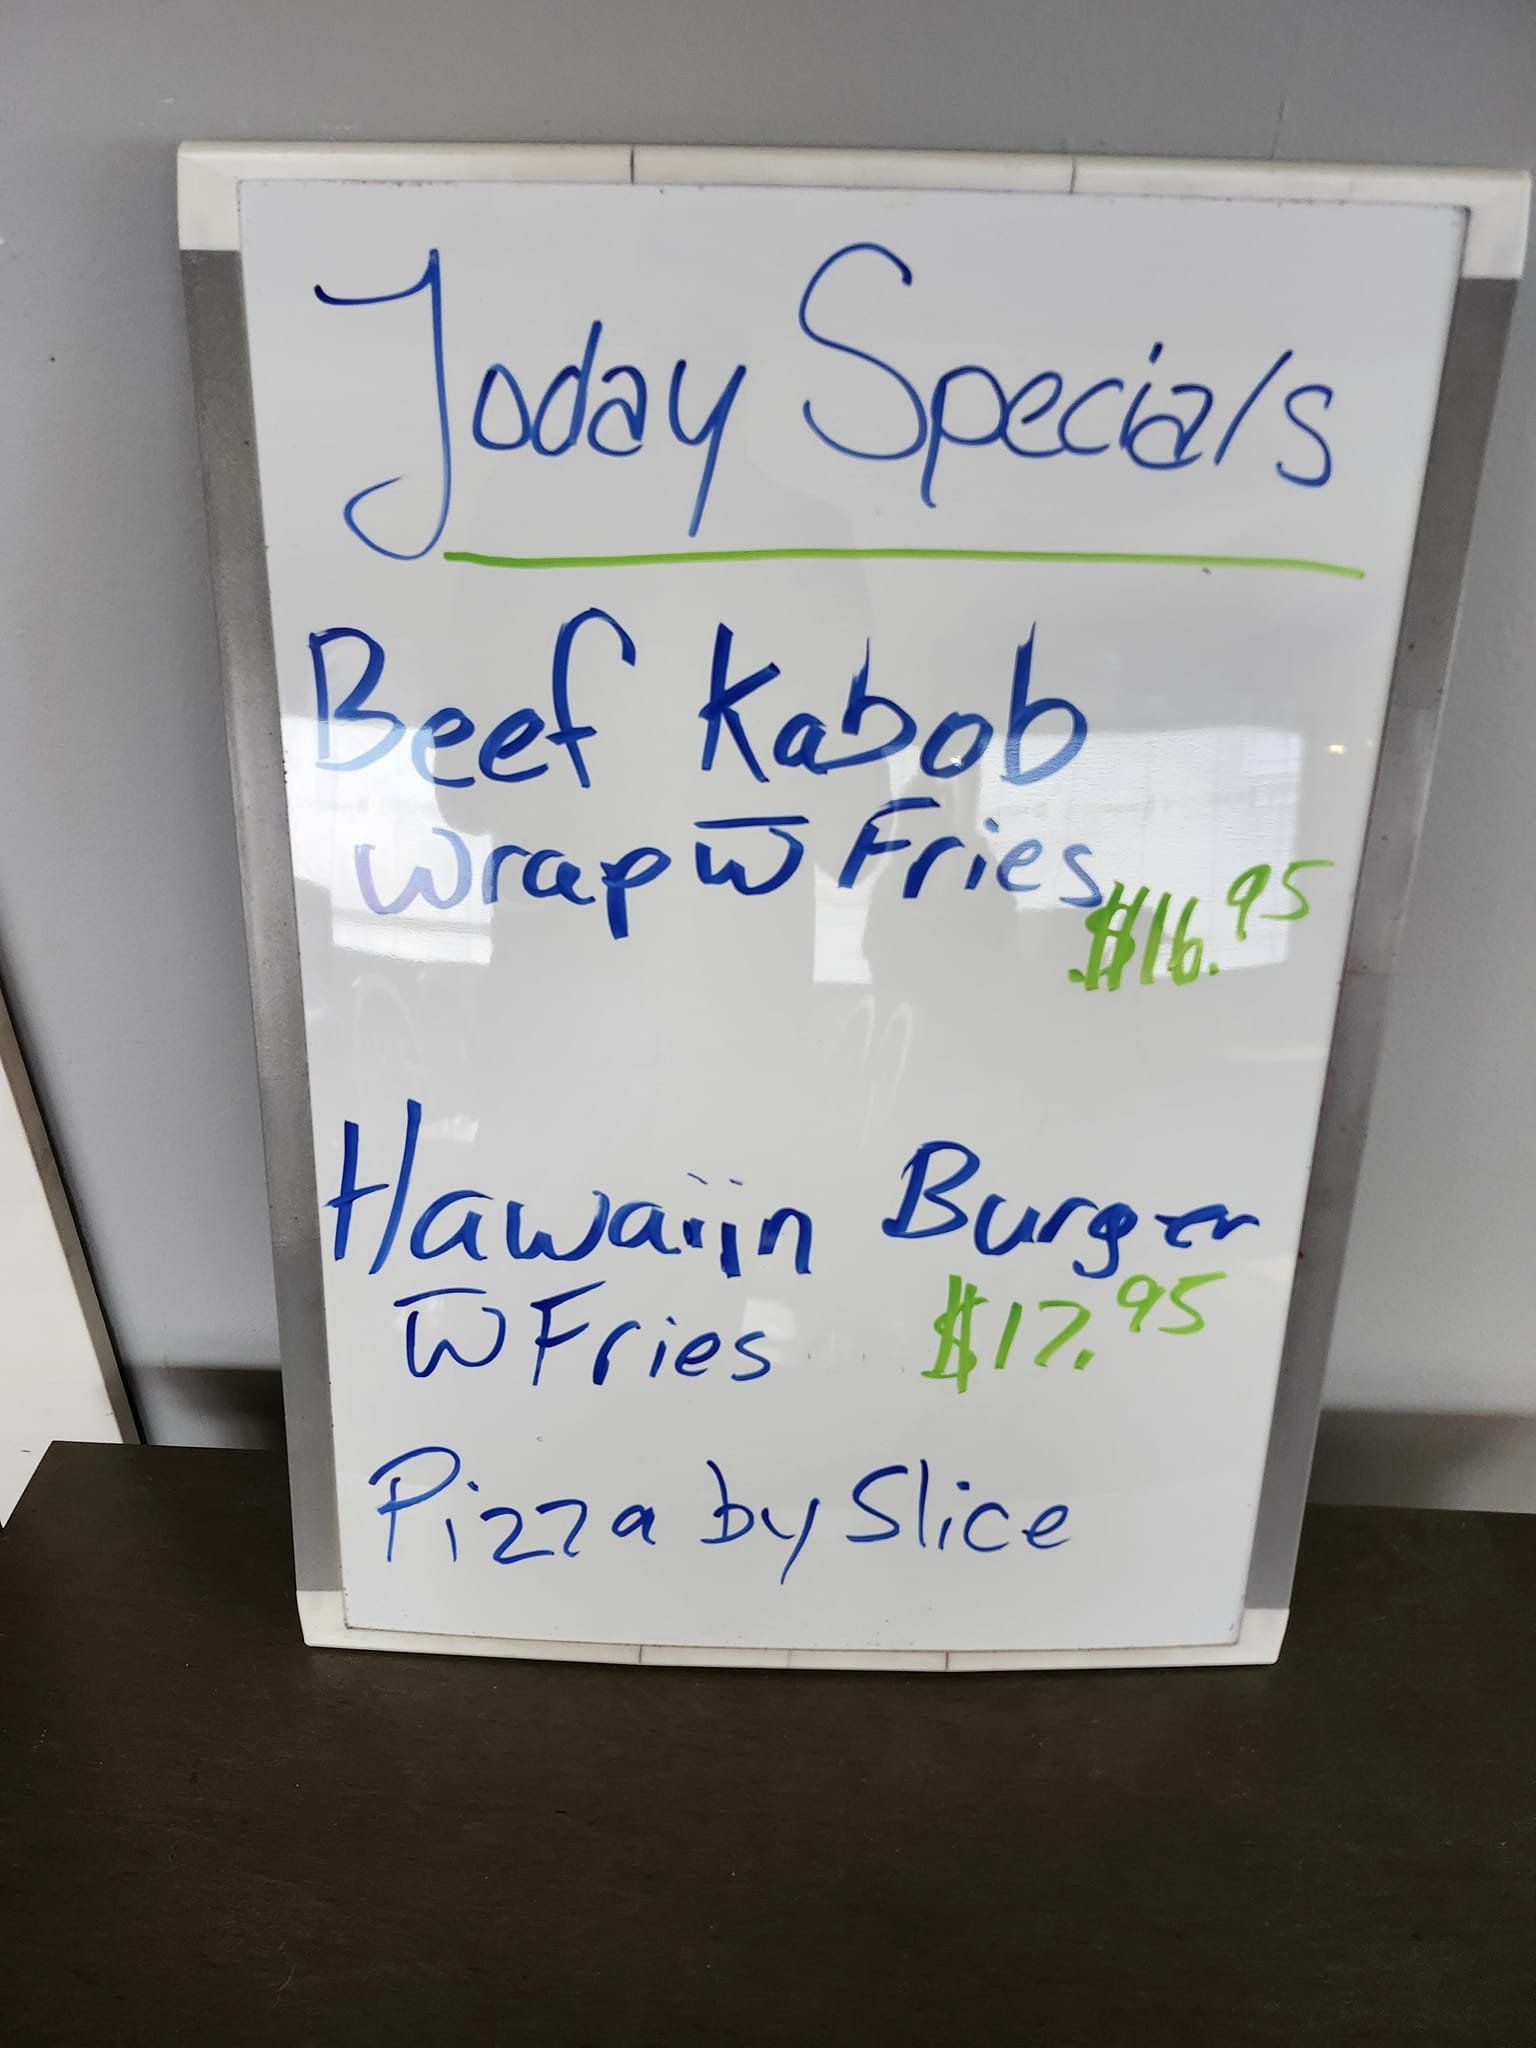 Today Specials
Beef Kabob
Wrap w̅ Fries
$16.95
Hawaiin Burger
w̅ Fries $17.95
Pizza by Slice